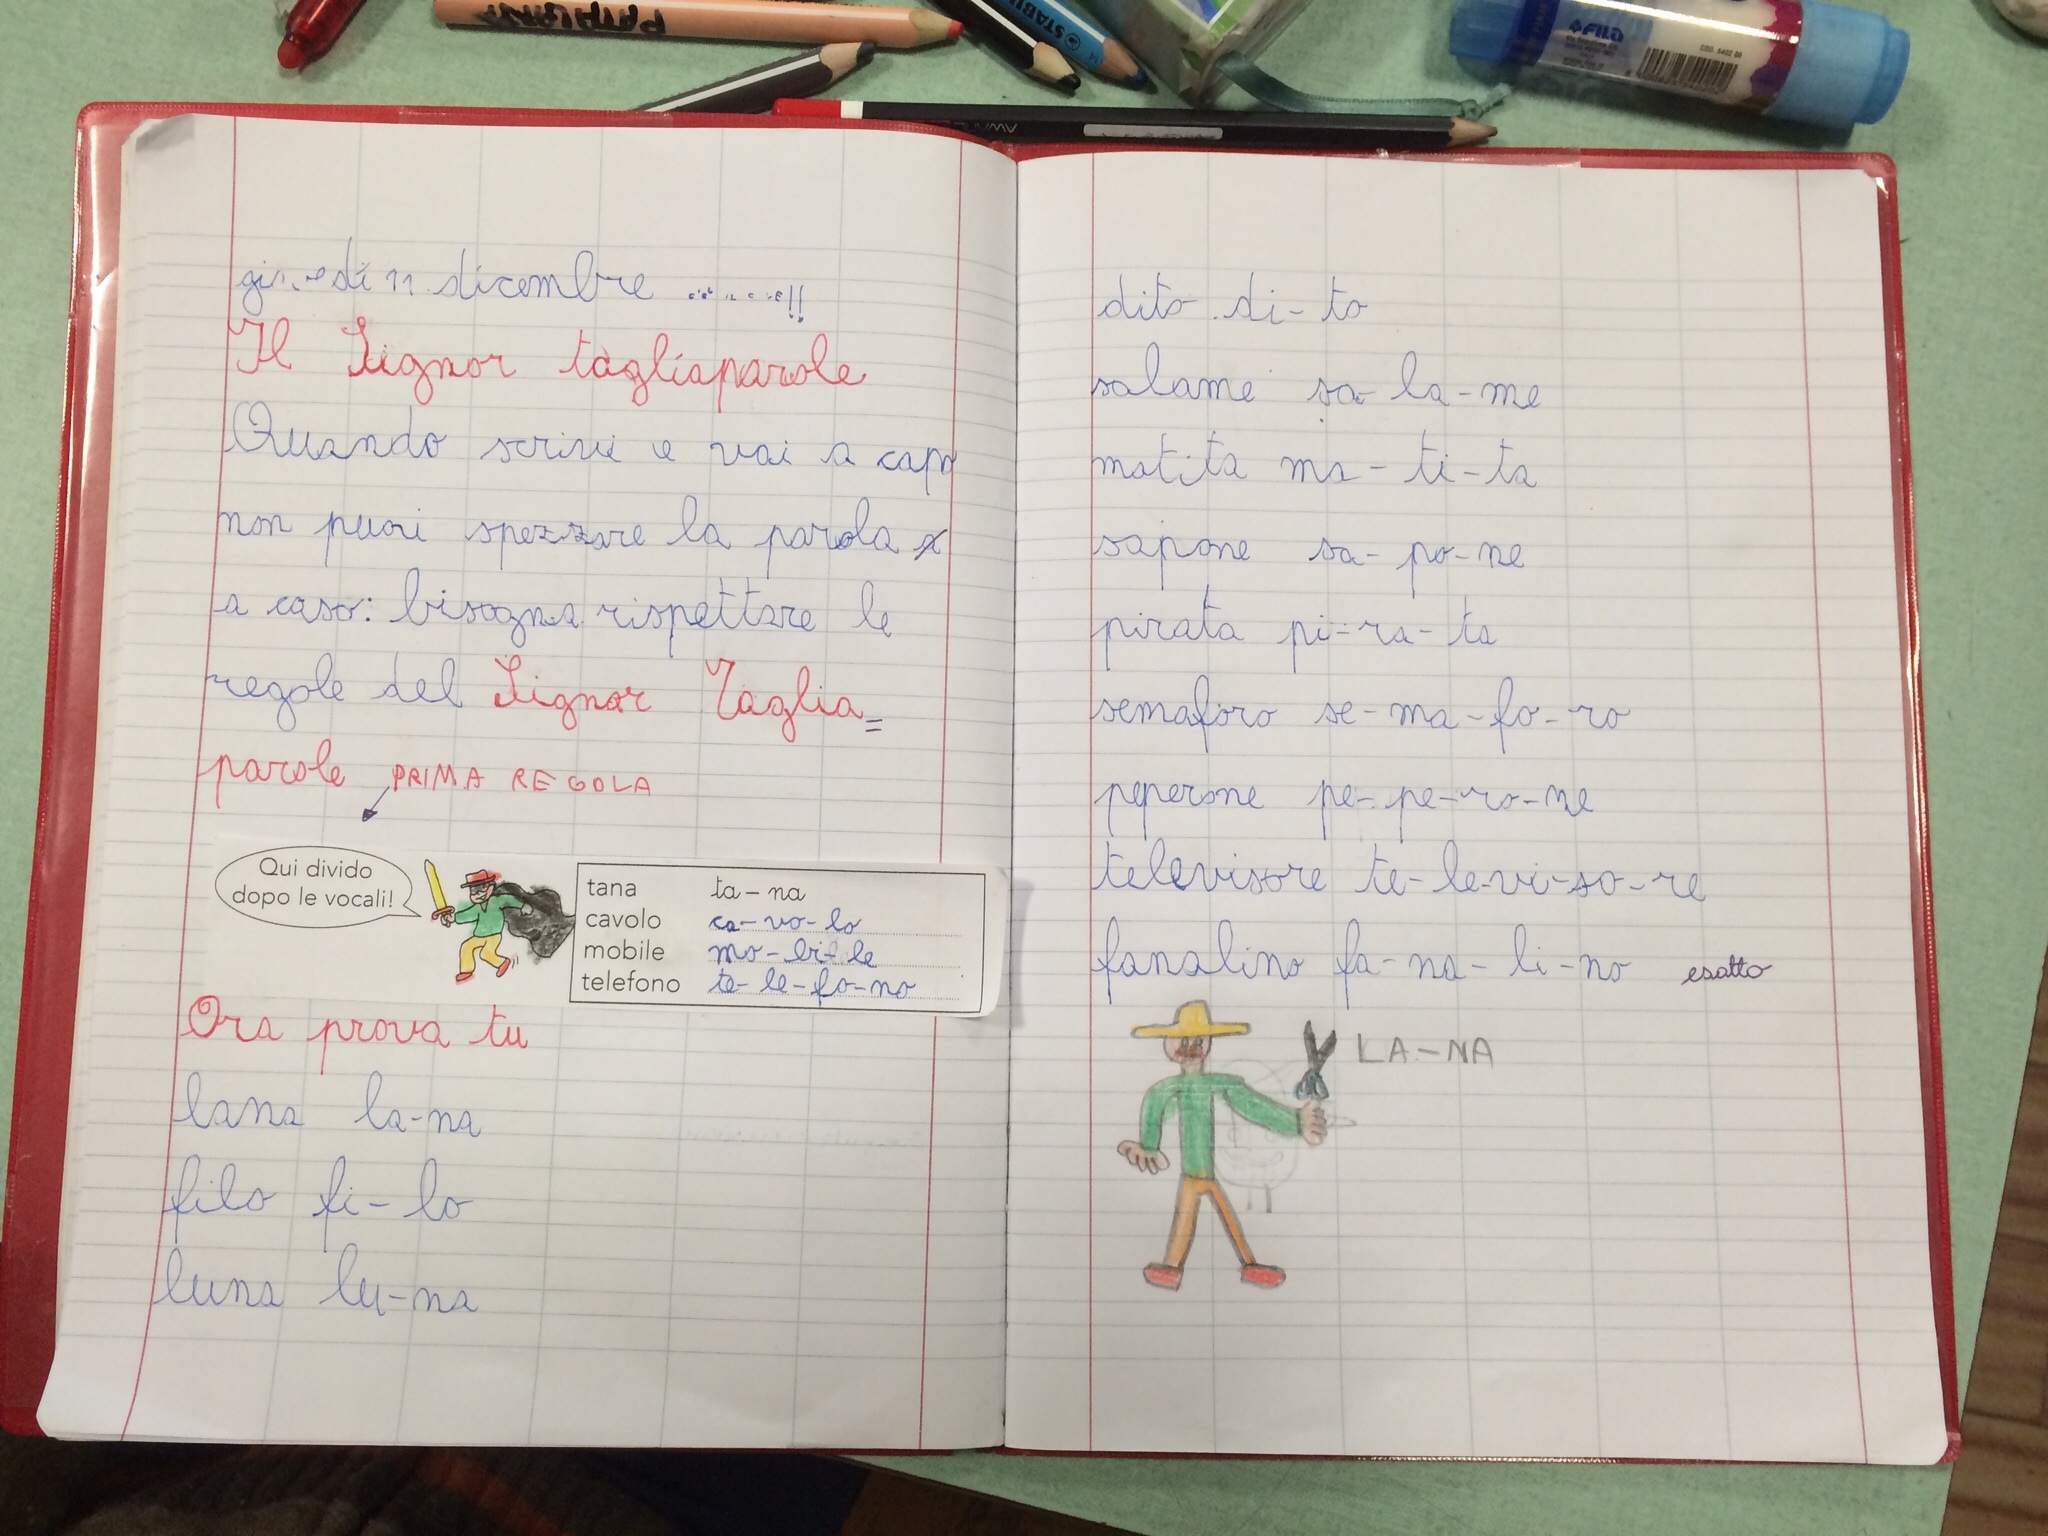 dicembre
Il Signor tagliaparole
Quando scrivi e vai a capo
non puoi spezzare la parola
a caso: bisogna rispettare le
regole del Signor Taglia=
parole PRIMA REGOLA
Qui divido
dopo le vocali!
tana ta-na
cavolo ca-vo-lo
mobile mo-bi-le
telefono te-le-fo-no
Ora prova tu
lana la-na
filo fi-lo
luna lu-na
dito di-to
salame sa-la-me
matita ma-ti-ta
sapone sa-po-ne
pirata pi-ra-ta
semaforo se-ma-fo-ro
peperone pe-pe-ro-ne
televisore te-le-vi-so-re
fanalino fa-na-li-no esatto
LA-NA
STABIL